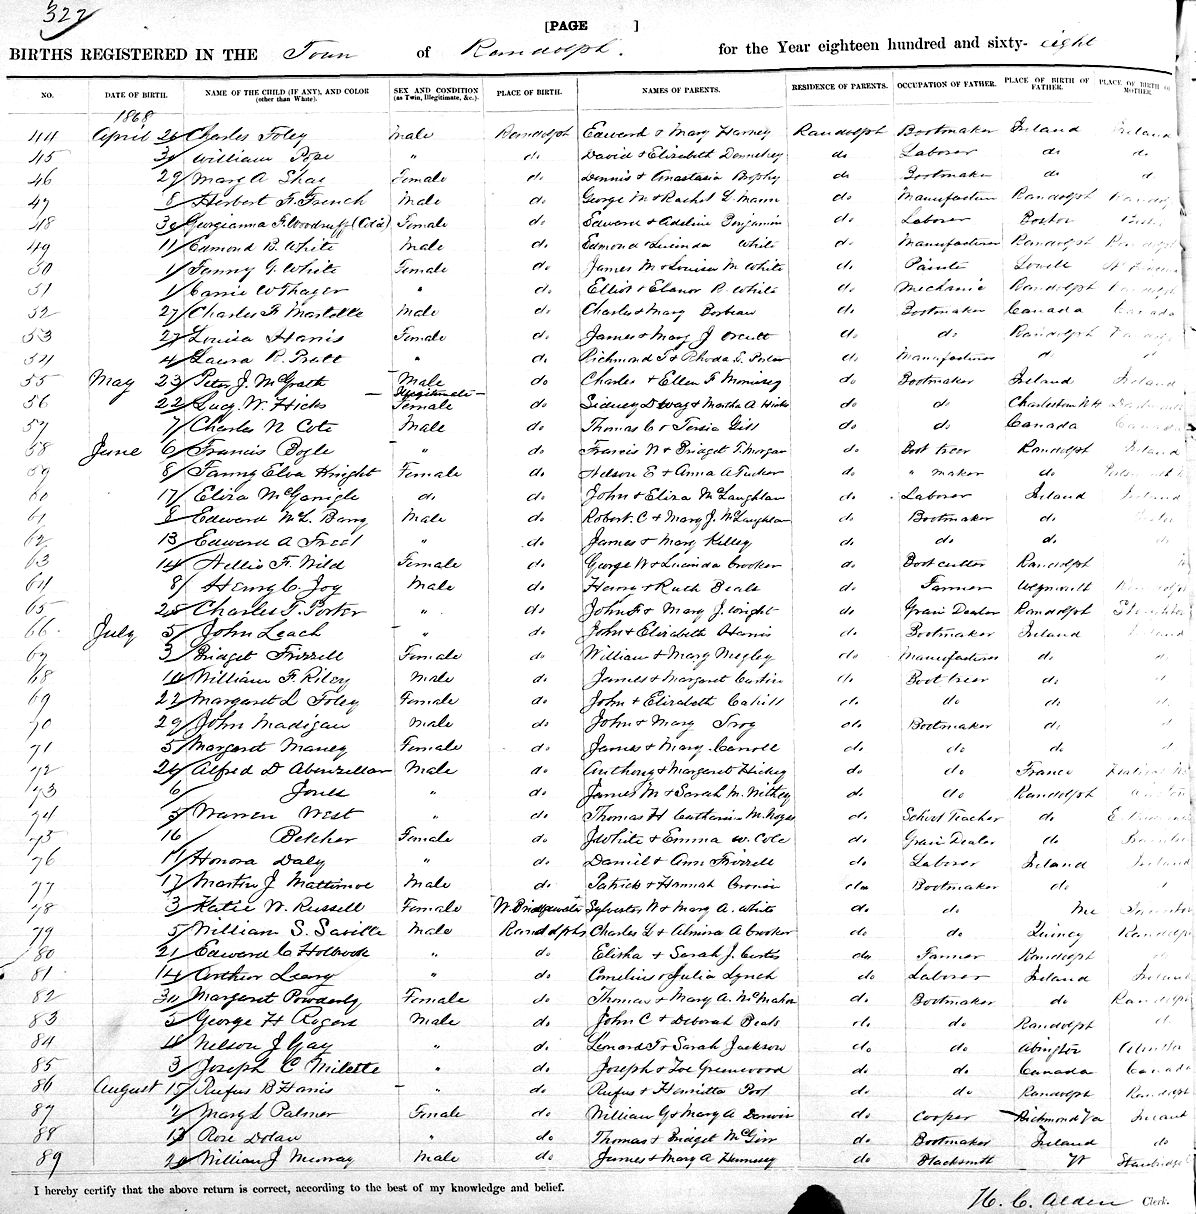 322
[PAGE ]
BIRTHS REGISTERED IN THE Town of Randolph. for the Year eighteen hundred and sixty-eight
NO. DATE OF BIRTH. NAME OF THE CHILD (IF ANY), AND COLOR (other than White). SEX AND CONDITION (as Twin, Illegitimate, &c.). PLACE OF BIRTH. NAMES OF PARENTS. RESIDENCE OF PARENTS. OCCUPATION OF FATHER. PLACE OF BIRTH OF FATHER. PLACE OF BIRTH OF MOTHER.
1868
44 April 26 Charles Foley Male Randolph Edward & Mary Harney Randolph Bootmaker Ireland Ireland
45 30 William Pope " do David & Elizabeth Dennehey do Laborer do do
46 29 Mary A Shae Female do Dennis & Anastasia Brophy do Bootmaker do d
47 8 Herbert F. French Male do George M & Rachel L. Mann do Manufacturer Randolph Randolph
48 30 Georgianna F. Woodruff (Col'd) Female do Edward & Adeline Benjamin do Laborer Boston
49 11 Edmond B. White Male do Edmond & Lucinda White do Manufacturer Randolph Randolph
50 1 Fanny G. White Female do James M & Louisa M. White do Painter Lowell
51 1 Carrie W Thayer " do Elliot & Elanor R. White do Mechanic Randolph
52 27 Charles F. Male do Charles & Mary do Bootmaker Canada Canada
53 27 Louisa Harris Female do James & Mary J Orcutt do do Randolph
54 4 Laura R. Pratt " do Richmond T & Rhoda do Manufacturer d d
55 May 23 Peter J. McGrath Male do Charles & Ellen F Morrisey do Bootmaker Ireland Ireland
56 22 Lucy W. Hicks — Illegitimate — Female do Sidney D Way & Martha A Hicks do do Charlestown N H
57 7 Charles N Cote Male do Thomas C & Tersia Gill do do Canada Canada
58 June 6 Francis Boyle " do Francis N & Bridget T. Morgan do Boot treer Randolph Ireland
59 8 Fanny Elva Knight Female do Nelson E & Anna A Tucker do " maker do
60 17 Eliza McGarigle do do John & Eliza McLaughlan do Laborer Ireland Ireland
61 8 Edward McL. Barry Male do Robert. C & Mary J. McLaughlan do Bootmaker do
62 13 Edward A " do James & Mary Kelley do do do
63 14 Nellie F. Wild Female do George W & Lucinda Crooker do Boot cutter Randolph
64 8 Henry C. Joy Male do Henry & Ruth Beals do Farmer Weymouth
65 28 Charles T. Porter " do John F & Mary J. Wright do Grain Dealer Randolph Stoughton
66 July 5 John Leach " do John & Elizabeth Harris do Bootmaker Ireland Ireland
67 3 Bridget Frizzell Female do William & Mary Megley do Manufacturer do d
68 10 William F. Riley Male do James & Margaret Curtin do Boot treer do d
69 22 Margaret L Foley Female do John & Elizabeth Cahill do do do d
70 29 John Madigan Male do John & Mary Troy do Bootmaker do d
71 5 Margaret Maney Female do James & Mary Carroll do do do d
72 26 Alfred D Abenzellar Male do Anthony & Margaret Hickey do do France
73 6 Jones " do James M & Sarah M. do do Randolph
74 5 Warren West " do Thomas H Catharine M. Noyes do School Teacher do
75 16 Belcher Female do J White & Emma W. Cole do Grain Dealer do
76 11 Honora Daly " do Daniel & Ann Frizzell do Laborer Ireland Ireland
77 17 Martin J Mattimoe Male do Patrick & Hannah Cronin do Bootmaker do d
78 3 Katie W. Russell Female W. Bridgewater Sylvester W & Mary A. White do do Me
79 5 William S. Saville Male Randolph Charles L & Almira A Crooker do do Quincy Randolph
80 21 Edward C Holbrook " do Elisha & Sarah J. Curtis do Farmer Randolph do
81 14 Arthur Leary " do Cornelius & Julia Lynch do Laborer Ireland Ireland
82 30 Margaret Powderly Female do Thomas & Mary A. McMahon do Bootmaker do Randolph
83 5 George H Rogers Male do John C & Deborah Beals do do Randolph d
84 4 Nelson J Gay " do Leonard F & Sarah Jackson do do Abington
85 3 Joseph C Milette " do Joseph & Zoe Greenwood do do Canada Canada
86 August 17 Rufus B Harris " do Rufus & Henrietta Pool do do Randolph Randolph
87 2 Mary L Palmer Female do William G & Mary A Darwin do Cooper Richmond Va Ireland
88 13 Rose Dolan " do Thomas & Bridget McGirr do Bootmaker Ireland do
89 20 William J Murray Male do James & Mary A Hennesey do Blacksmith Vt Stanbridge
I hereby certify that the above return is correct, according to the best of my knowledge and belief.
H. C. Alden Clerk.